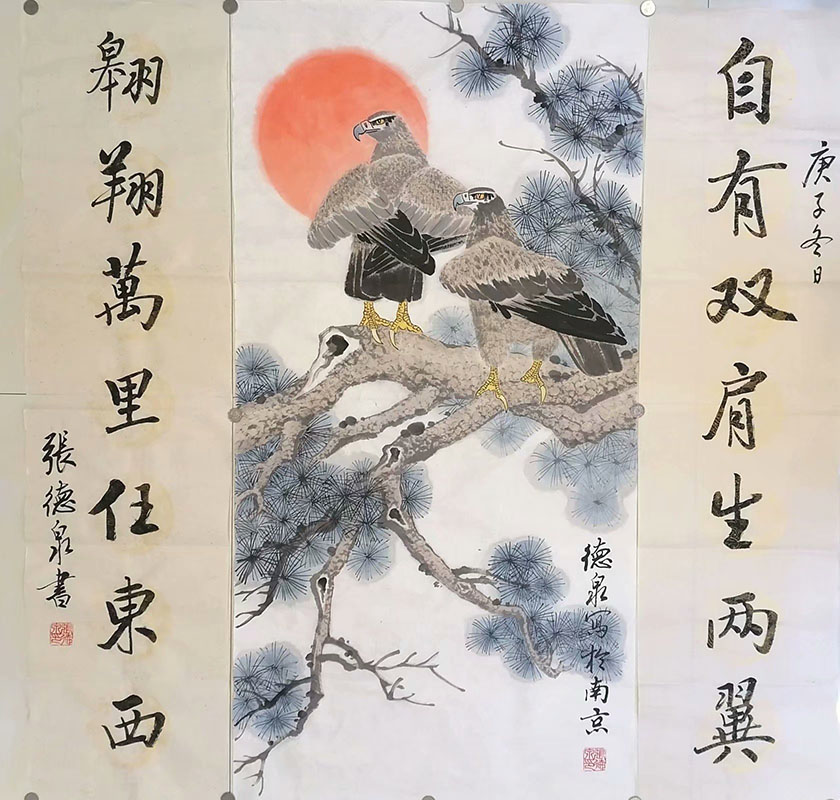 庚子冬日
自有双肩生两翼
翱翔萬里任東西
張德泉書
德泉寫於南京